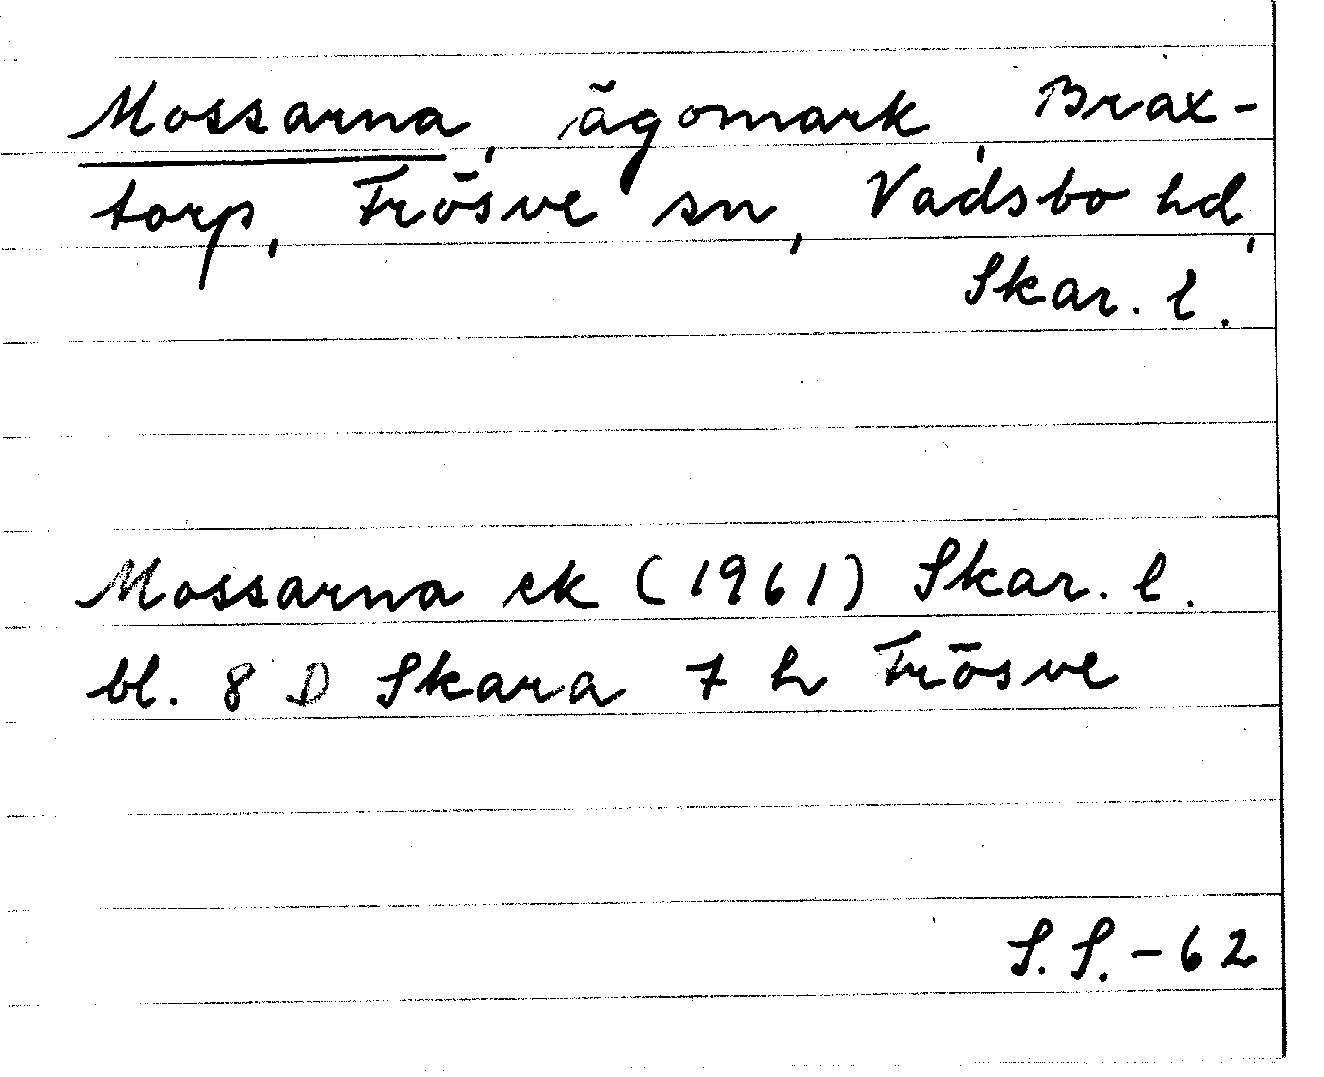 Mossarna, ägomark, Brax-
torp, Frösve sn, Vadsbo hd,
Skar. l.
Mossarna ek (1961) Skar. l.
bl. 8 D Skara 7 h Frösve
S. S. - 62